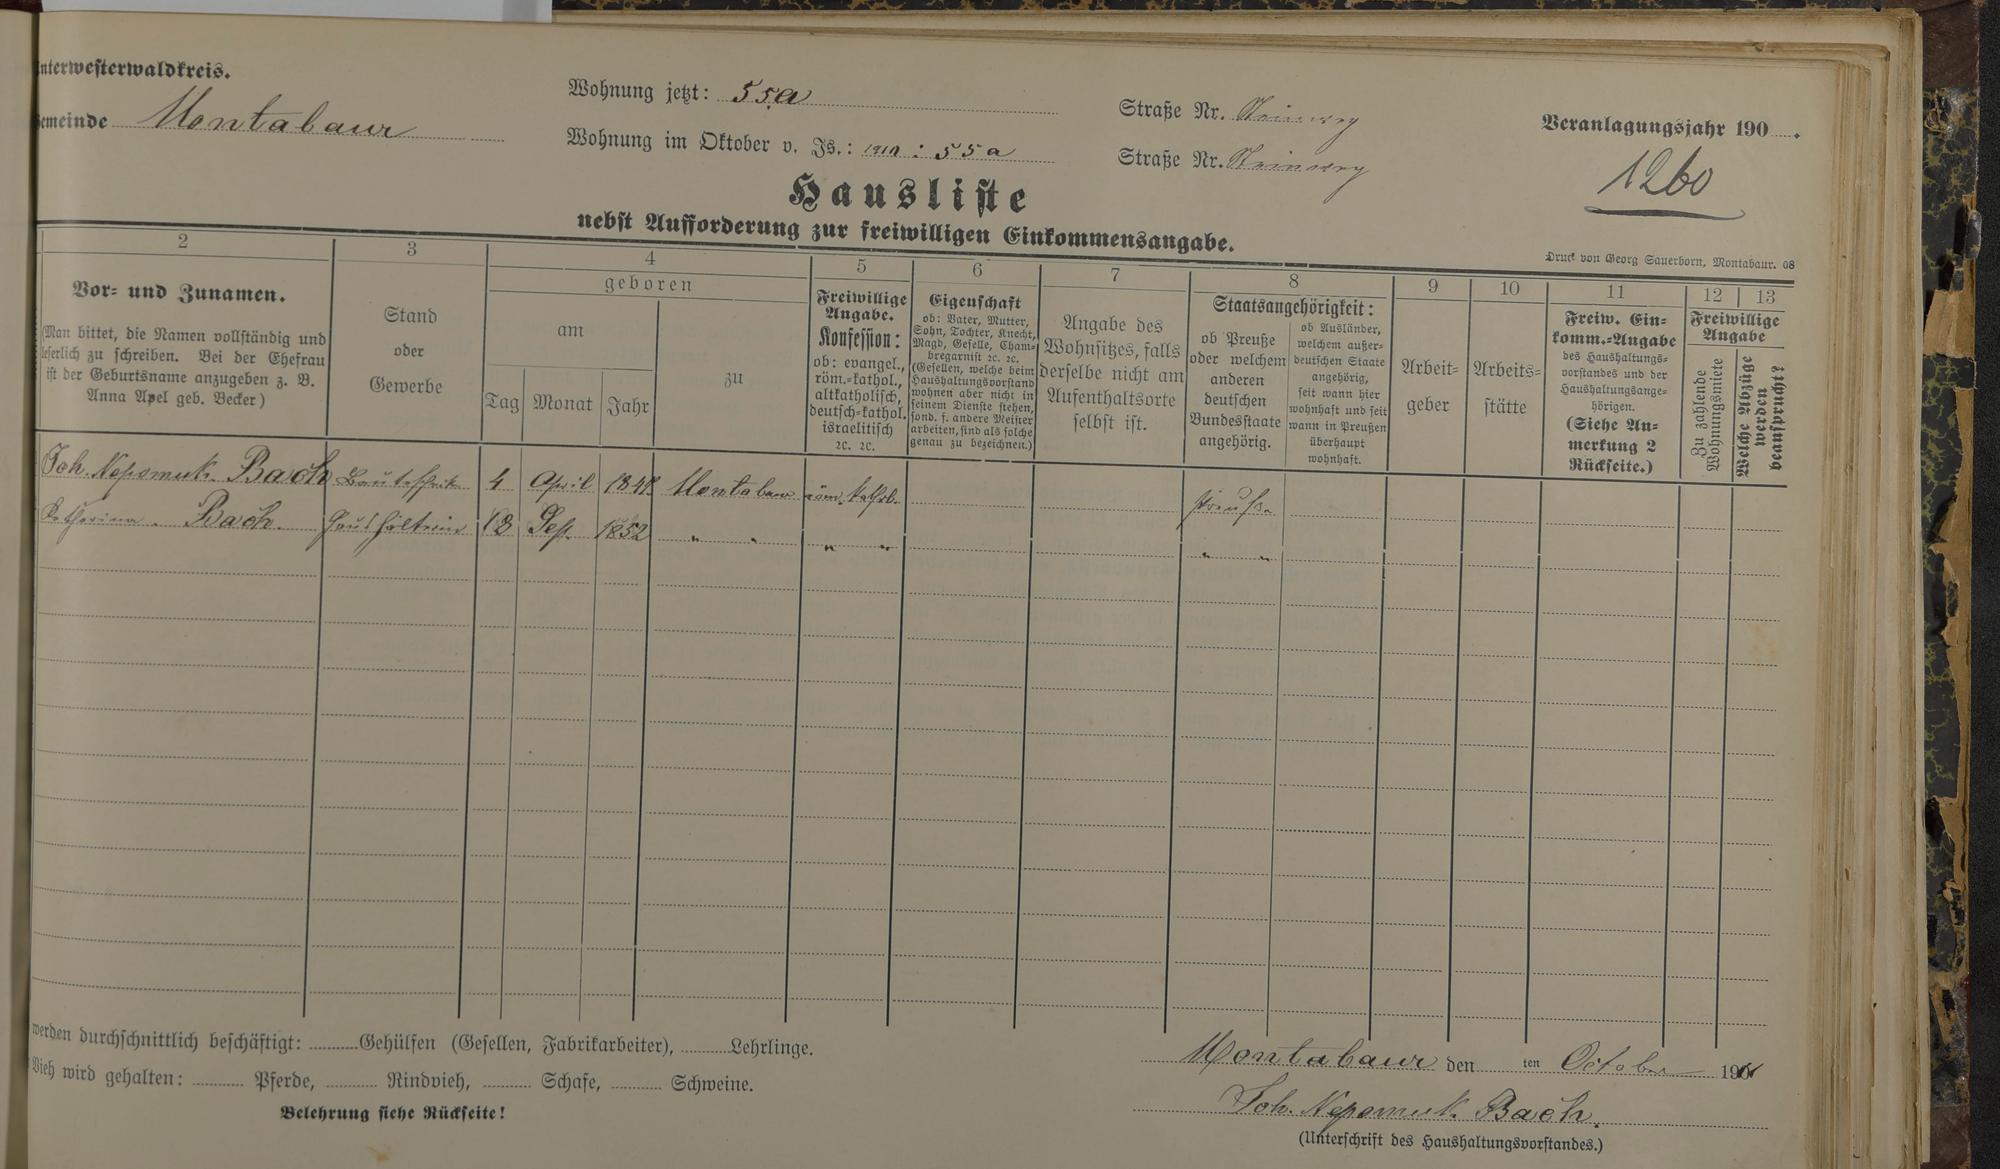 nterwesterwaldkreis.
emeinde Montabaur
Wohnung jetzt: 55a
Wohnung im Oktober v. Js.: : 55a
Straße Nr. Steinweg
Straße Nr. Steinweg
Veranlagungsjahr 190 .
1260
Hausliste
nebst Aufforderung zur freiwilligen Einkommensangabe.
Druck von Georg Sauerborn, Montabaur. 08
2
Vor- und Zunamen.
(Man bittet, die Namen vollständig und
leserlich zu schreiben. Bei der Ehefrau
ist der Geburtsname anzugeben z. B.
Anna Apel geb. Becker)
3
Stand
oder
Gewerbe
4
geboren
am
Tag Monat Jahr
zu
5
Freiwillige
Angabe.
Konfession:
ob: evangel.,
röm.-kathol.,
altkatholisch,
deutsch-kathol.
israelitisch
2c. 2c.
6
Eigenschaft
ob: Vater, Mutter,
Sohn, Tochter, Knecht,
Magd, Geselle, Cham-
bregarnist 2c. 2c.
(Gesellen, welche beim
Haushaltungsvorstand
wohnen aber nicht in
seinem Dienste stehen,
sond. f. andere Meister
arbeiten, sind als solche
genau zu bezeichnen.)
7
Angabe des
Wohnsitzes, falls
derselbe nicht am
Aufenthaltsorte
selbst ist.
8
Staatsangehörigkeit:
ob Preuße
oder welchem
anderen
deutschen
Bundesstaate
angehörig.
ob Ausländer,
welchem außer-
deutschen Staate
angehörig,
seit wann hier
wohnhaft und seit
wann in Preußen
überhaupt
wohnhaft.
9
Arbeit-
geber
10
Arbeits-
stätte
11
Freiw. Ein-
komm.-Angabe
des Haushaltungs-
vorstandes und der
Haushaltungsange-
hörigen.
(Siehe An-
merkung 2
Rückseite.)
12 13
Freiwillige
Angabe
Zu zahlende
Wohnungsmiete
Welche Abzüge
werden
beansprucht?
Joh. Nepomuk Bach 4 April Montabaur röm. kathol. Preuße
Katharina Bach Haushälterin 18 Sep. 1852 " " " " " "
werden durchschnittlich beschäftigt: Gehülfen (Gesellen, Fabrikarbeiter), Lehrlinge.
Vieh wird gehalten: Pferde, Rindvieh, Schafe, Schweine.
Belehrung siehe Rückseite!
Montabaur den ten October
Joh. Nepomuk Bach.
(Unterschrift des Haushaltungsvorstandes.)